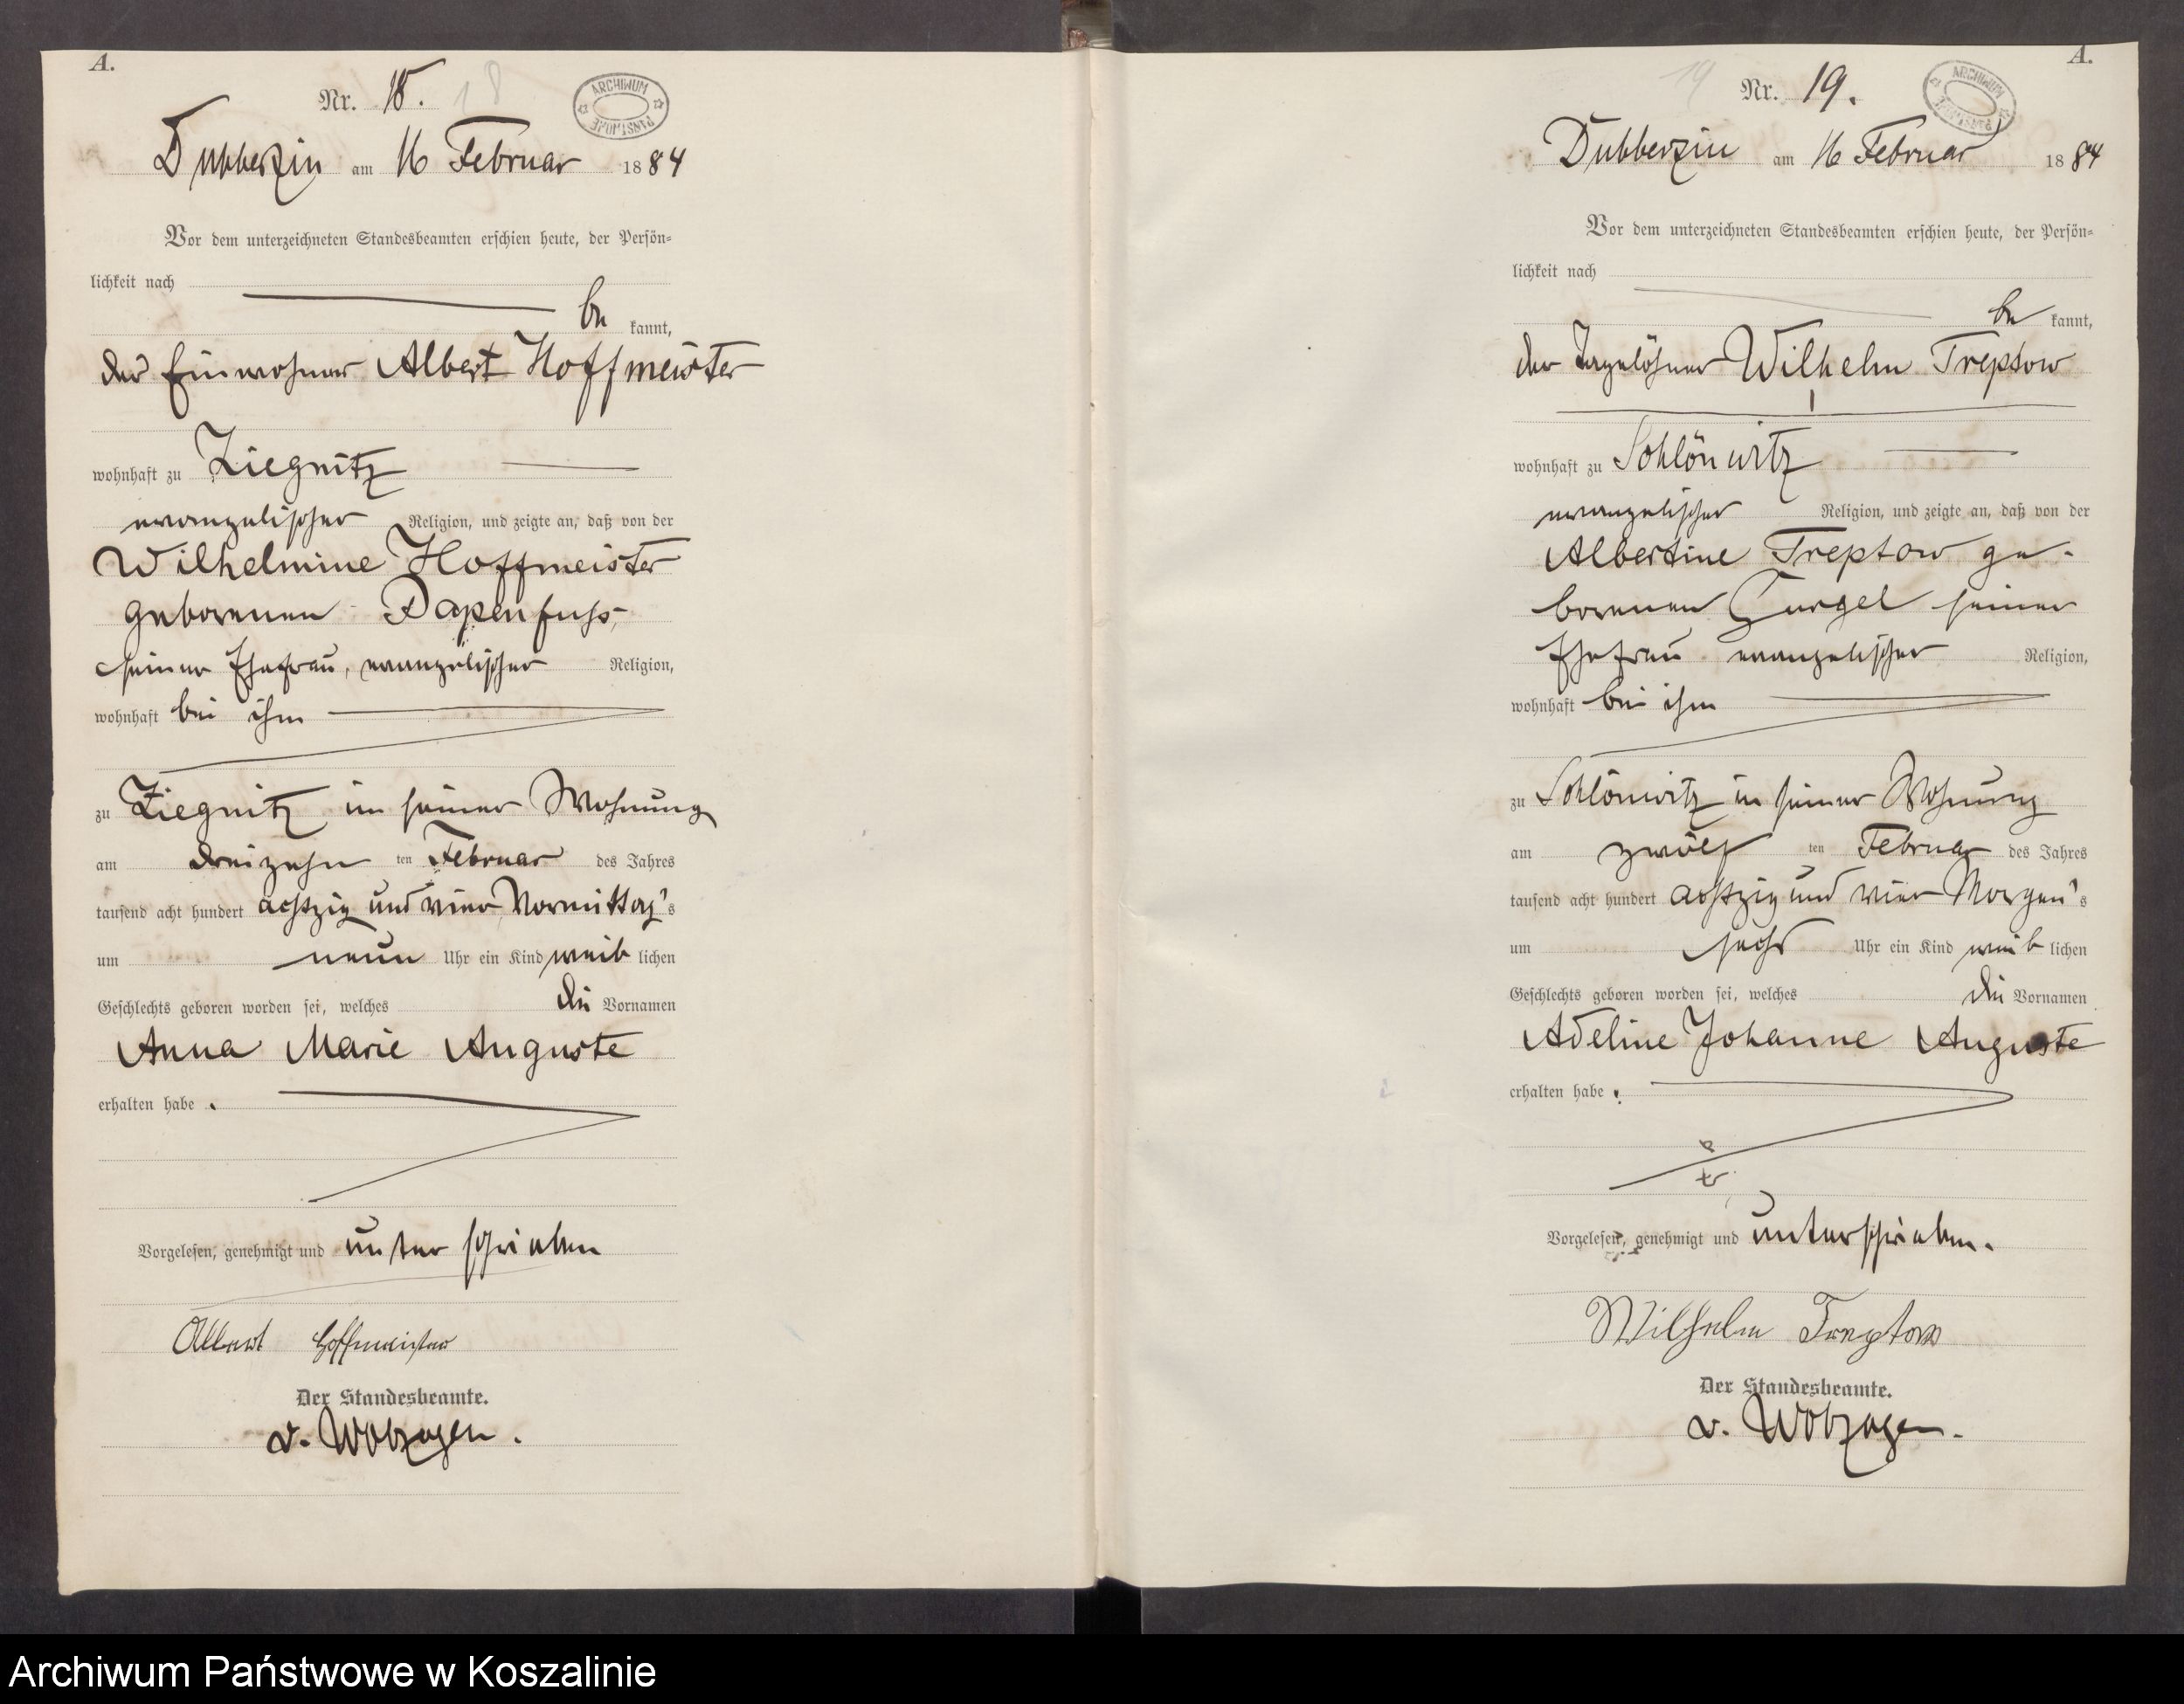 A.
Nr. 18. 18
ARCHIWUM PAŃSTWOWE
Dubberzin am 16 Februar 1884
Vor dem unterzeichneten Standesbeamten erschien heute, der Persön=
lichkeit nach
be kannt,
der Einwohner Albert Hoffmeister
wohnhaft zu Ziegnitz
evangelischer Religion, und zeigte an, daß von der
Wilhelmine Hoffmeister
geborenen Papenfuss,
seiner Ehefrau, evangelischer Religion,
wohnhaft bei ihm
zu Ziegnitz in seiner Wohnung
am dreizehn ten Februar des Jahres
tausend acht hundert achtzig und vier Vormittag's
um neun Uhr ein Kind weib lichen
Geschlechts geboren worden sei, welches die Vornamen
Anna Marie Auguste
erhalten habe.
Vorgelesen, genehmigt und unterschrieben
Albert Hoffmeister
Der Standesbeamte.
v. Wolzogen.
A.
19 Nr. 19.
ARCHIWUM PAŃSTWOWE
Dubberzin am 16 Februar 1884
Vor dem unterzeichneten Standesbeamten erschien heute, der Persön=
lichkeit nach
be kannt,
der Tagelöhner Wilhelm Treptow
wohnhaft zu Schlönwitz
evangelischer Religion, und zeigte an, daß von der
Albertine Treptow ge-
borenen Gurgel seiner
Ehefrau evangelischer Religion,
wohnhaft bei ihm
zu Schlönwitz in seiner Wohnung
am zwölf ten Februar des Jahres
tausend acht hundert achtzig und vier Morgen's
um sechs Uhr ein Kind weib lichen
Geschlechts geboren worden sei, welches die Vornamen
Adeline Johanne Auguste
erhalten habe.
Vorgelesen, genehmigt und unterschrieben.
Wilhelm Treptow
Der Standesbeamte.
v. Wolzogen.
Archiwum Państwowe w Koszalinie